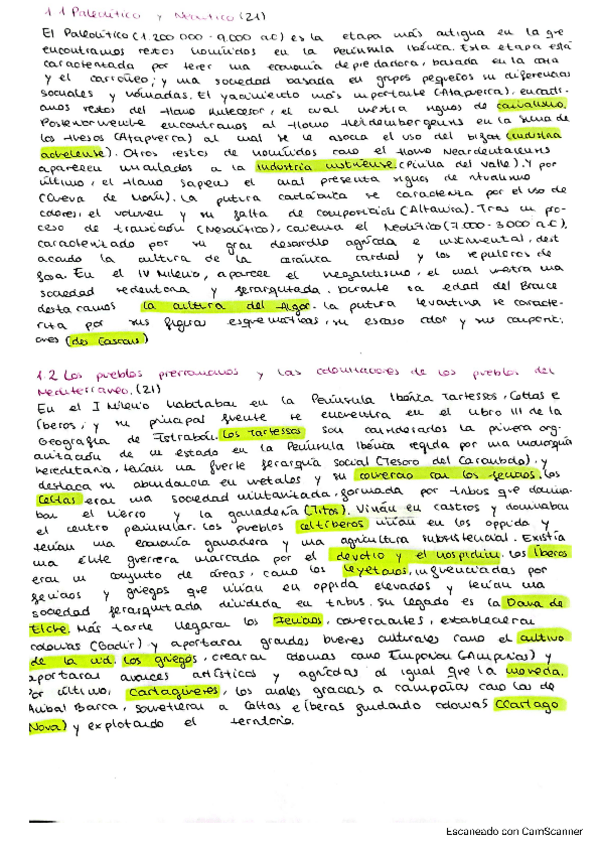 1.1 Paleolítico y Neolítico (21)
El Paleolítico (1.200 000 - 9.000 a.C) es la etapa más antigua en la que
encontramos restos homínidos en la Península Ibérica. Esta etapa está
caracterizada por tener una economía depredadora, basada en la caza
y el carroñeo; y una sociedad basada en grupos pequeños su diferencias
sociales y nómadas. El yacimiento más importante (Atapuerca), encontra-
mos restos del Homo Antecesor, el cual muestra signos de canibalismo.
Posteriormente encontramos al Homo Heidelbergensis en la Sima de
los Huesos (Atapuerca) al cual se le asocia el uso del bifaz (industria
achelense). Otros restos de homínidos como el Homo Neardentalensis
aparecen vinculados a la industria musteriense (Pinilla del Valle). Y por
último, el Homo Sapiens el cual presenta signos de ritualismo
(Cueva de Morín). La pintura cantábrica se caracteriza por el uso de
colores, el volumen y su falta de composición (Altamira). Tras un pro-
ceso de transición (Mesolítico), comienza el Neolítico (7.000 - 3000 a.C),
caracterizado por su gran desarrollo agrícola e instrumental, dest
acando la cultura de la cerámica cardial y los sepulcros de
fosa. En el IV Milenio, aparece el megalitismo, el cual muestra una
sociedad sedentaria y jerarquizada. Durante la edad del Bronce
destacamos la cultura del Algar. La pintura levantina se caracte-
riza por sus figuras esquemáticas, su escaso color y sus composici
ones (de Cascaus)
1.2 Los pueblos prerromanos y las colonizaciones de los pueblos del
Mediterráneo. (21)
En el I Milenio habitaban en la Península Ibérica Tartessos, Celtas e
Íberos, y su principal fuente se encuentra en el libro III de la
Geografía de Estrabón. Los Tartessos son considerados la primera org-
anización de un estado en la Península Ibérica regida por una monarquía
hereditaria, tenían una fuerte jerarquía social (Tesoro del Carambolo), y
destaca su abundancia en metales y su comercio con los fenicios. Los
Celtas eran una sociedad militarizada, formada por tribus que domina-
ban el hierro y la ganadería (Titos). Vivían en castros y dominaban
el centro peninsular. Los pueblos celtíberos vivían en los oppida y
tenían una economía ganadera y una agricultura subsistencial. Existía
una élite guerrera marcada por el devotio y el hospitium. Los Íberos
eran un conjunto de áreas, como los Leyetanos, influenciadas por
fenicios y griegos que vivían en oppida elevados y tenían una
sociedad jerarquizada dividida en tribus. Su legado es la Dama de
Elche. Más tarde llegaron los Fenicios, comerciantes, establecieron
colonias (Gadir) y aportaron grandes bienes culturales como el cultivo
de la vid. Los griegos, crearon colonias como Emporion (Ampurias) y
aportaron avances artísticos y agrícolas al igual que la moneda.
Por último, Cartagineses, los cuales gracias a campañas como las de
Aníbal Barca, sometieron a Celtas e Íberos fundando colonias (Cartago
Nova) y explotando el territorio.
Escaneado con CamScanner